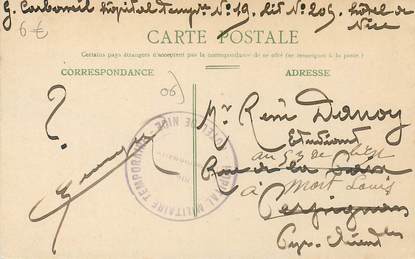 G. Carbonneil Hôpital Tempre N° 19. Lit N° 209. Hôtel de Nice
6 €
CARTE POSTALE
Certains pays étrangers n'acceptent pas la correspondance de ce côté (se renseigner à la poste)
CORRESPONDANCE
ADRESSE
06
?
HOPITAL MILITAIRE TEMPORAIRE
HOTEL DE NICE
Mr René Danoy
Etudiant
au 53 de ligne
Rue de la
à Mont Louis
Perpignan
Pyr. Orientles